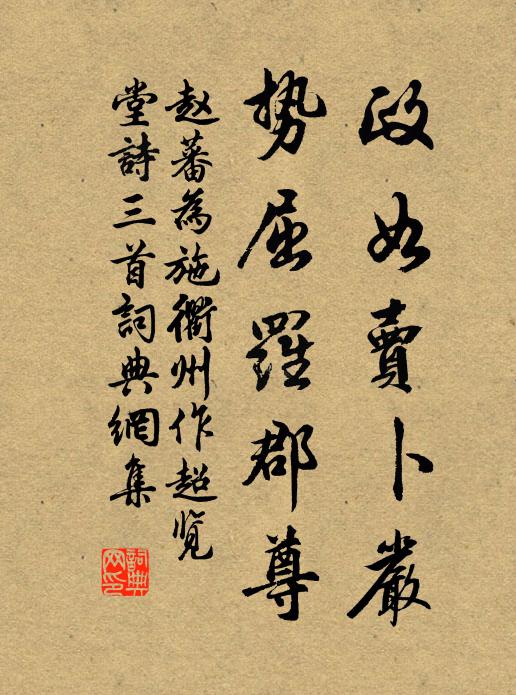 政如賣卜嚴
勢屈羅郡尊
赵蕃為施衢州作超览
堂詩三首詞典網集
詞典
网印